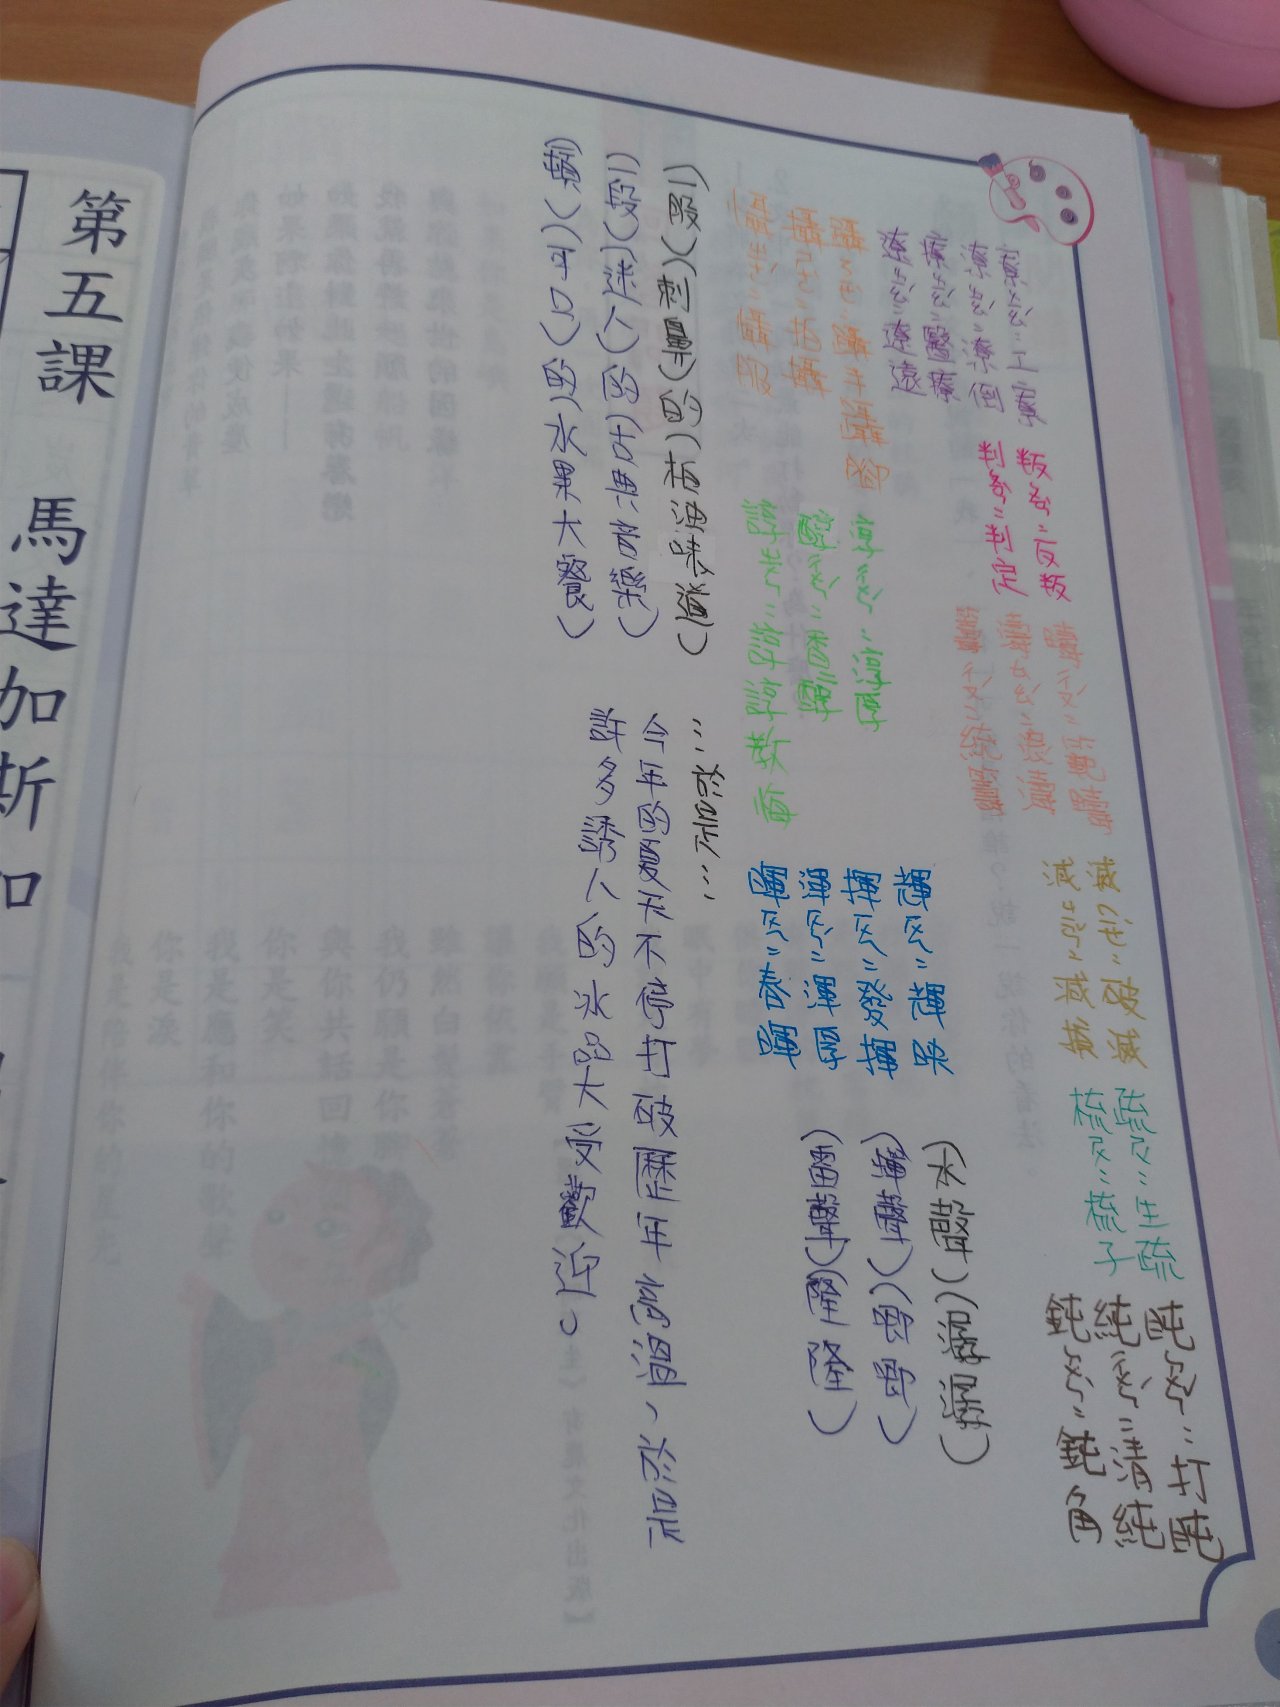 寮ㄌㄧㄠˊ:工寮
潦ㄌㄧㄠˊ:潦倒
療ㄌㄧㄠˊ:醫療
遼ㄌㄧㄠˊ:遼遠
叛ㄆㄢˋ:反叛
判ㄆㄢˋ:判定
疇ㄔㄡˊ:範疇
濤ㄊㄠˊ:浪濤
滅ㄇㄧㄝˋ:破滅
減ㄐㄧㄢˇ:減
疏ㄕㄨ:生疏
梳ㄕㄨ:梳子
盹ㄉㄨㄣˇ:打盹
純ㄔㄨㄣˊ:清純
鈍ㄉㄨㄣˋ:鈍角
躡ㄋㄧㄝˋ:躡手躡腳
攝ㄕㄜˋ:拍攝
懾ㄓㄜˊ:懾服
淳ㄔㄨㄣˊ:淳厚
醇ㄔㄨㄣˊ:香醇
諄ㄓㄨㄣ:諄諄教誨
輝ㄏㄨㄟ:輝映
揮ㄏㄨㄟ:發揮
渾ㄏㄨㄣˊ:渾厚
暉ㄏㄨㄟ:春暉
(水聲)(潺潺)
(蟬聲)(唧唧)
(雷聲)(隆隆)
(一股)(刺鼻)的(柏油味道)
(一段)(迷人)的(古典音樂)
(頓)(可口)的(水果大餐)
…於是…
今年的夏天不停打破歷年高溫,於是
許多誘人的冰品大受歡迎。
第五課
馬達加斯加